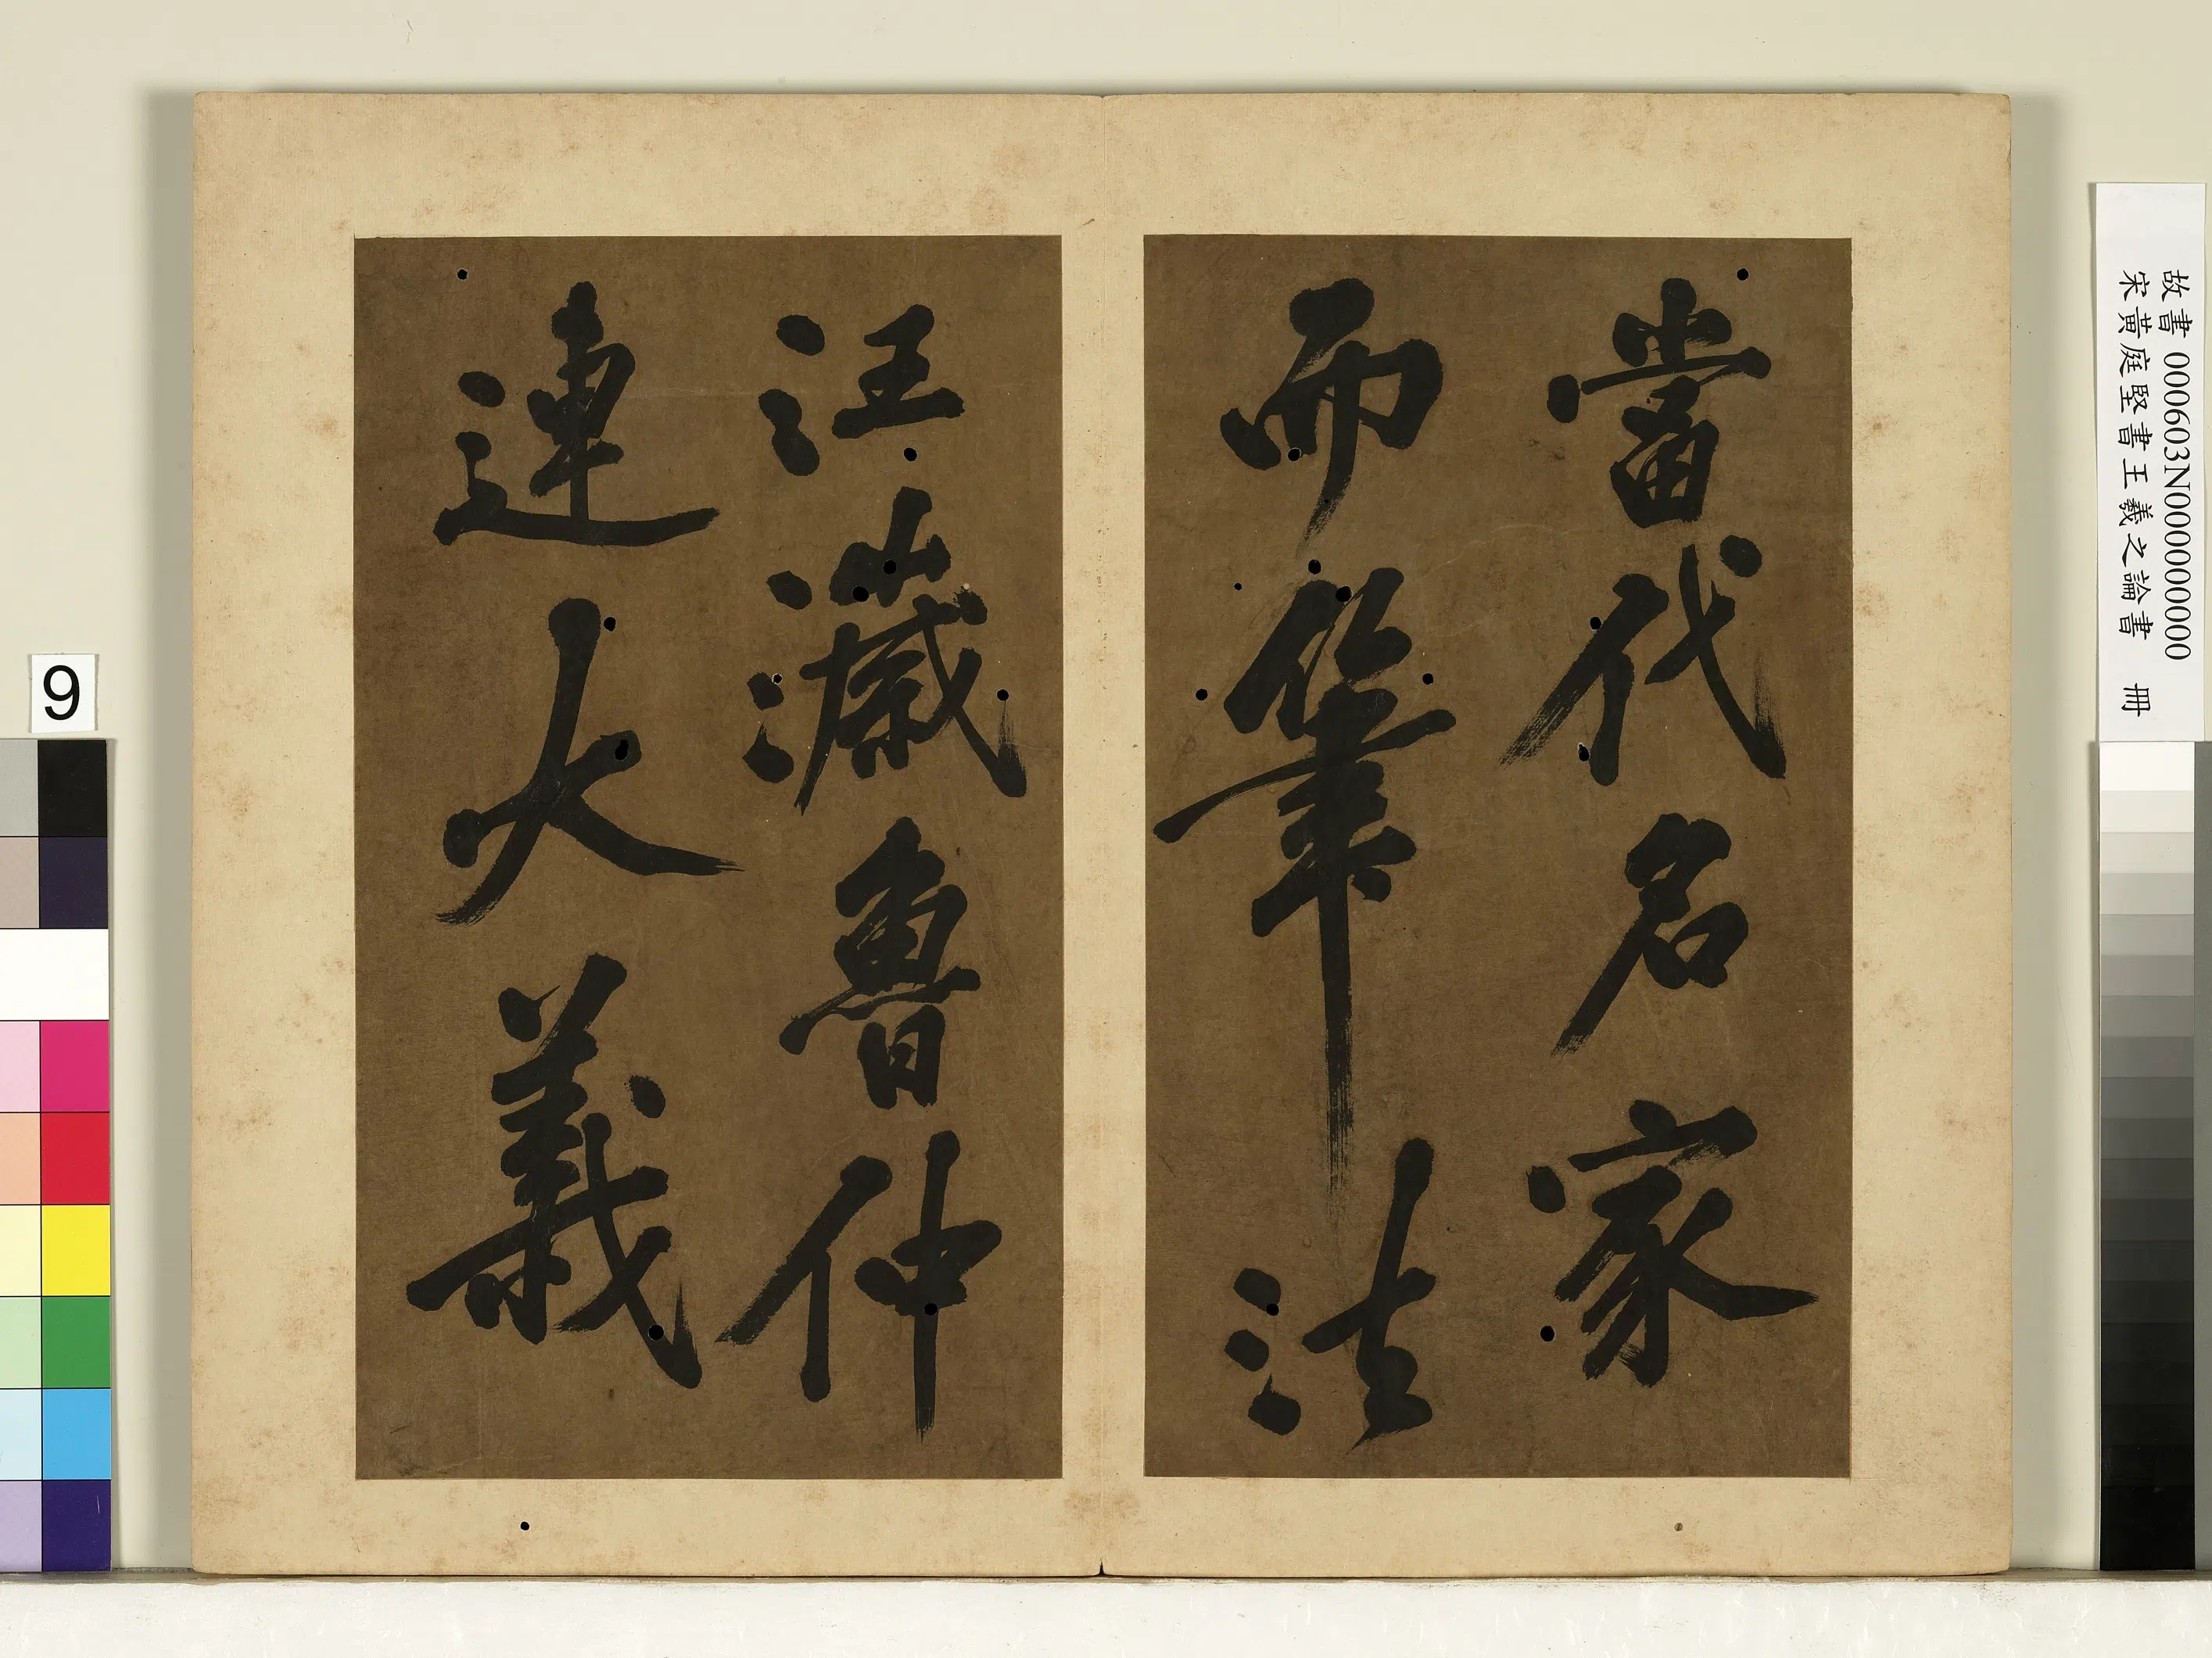 當代名家
而筆法
汪濊魯仲
連大義
故書 000603N000000000
宋黃庭堅書王羲之論書 冊
9